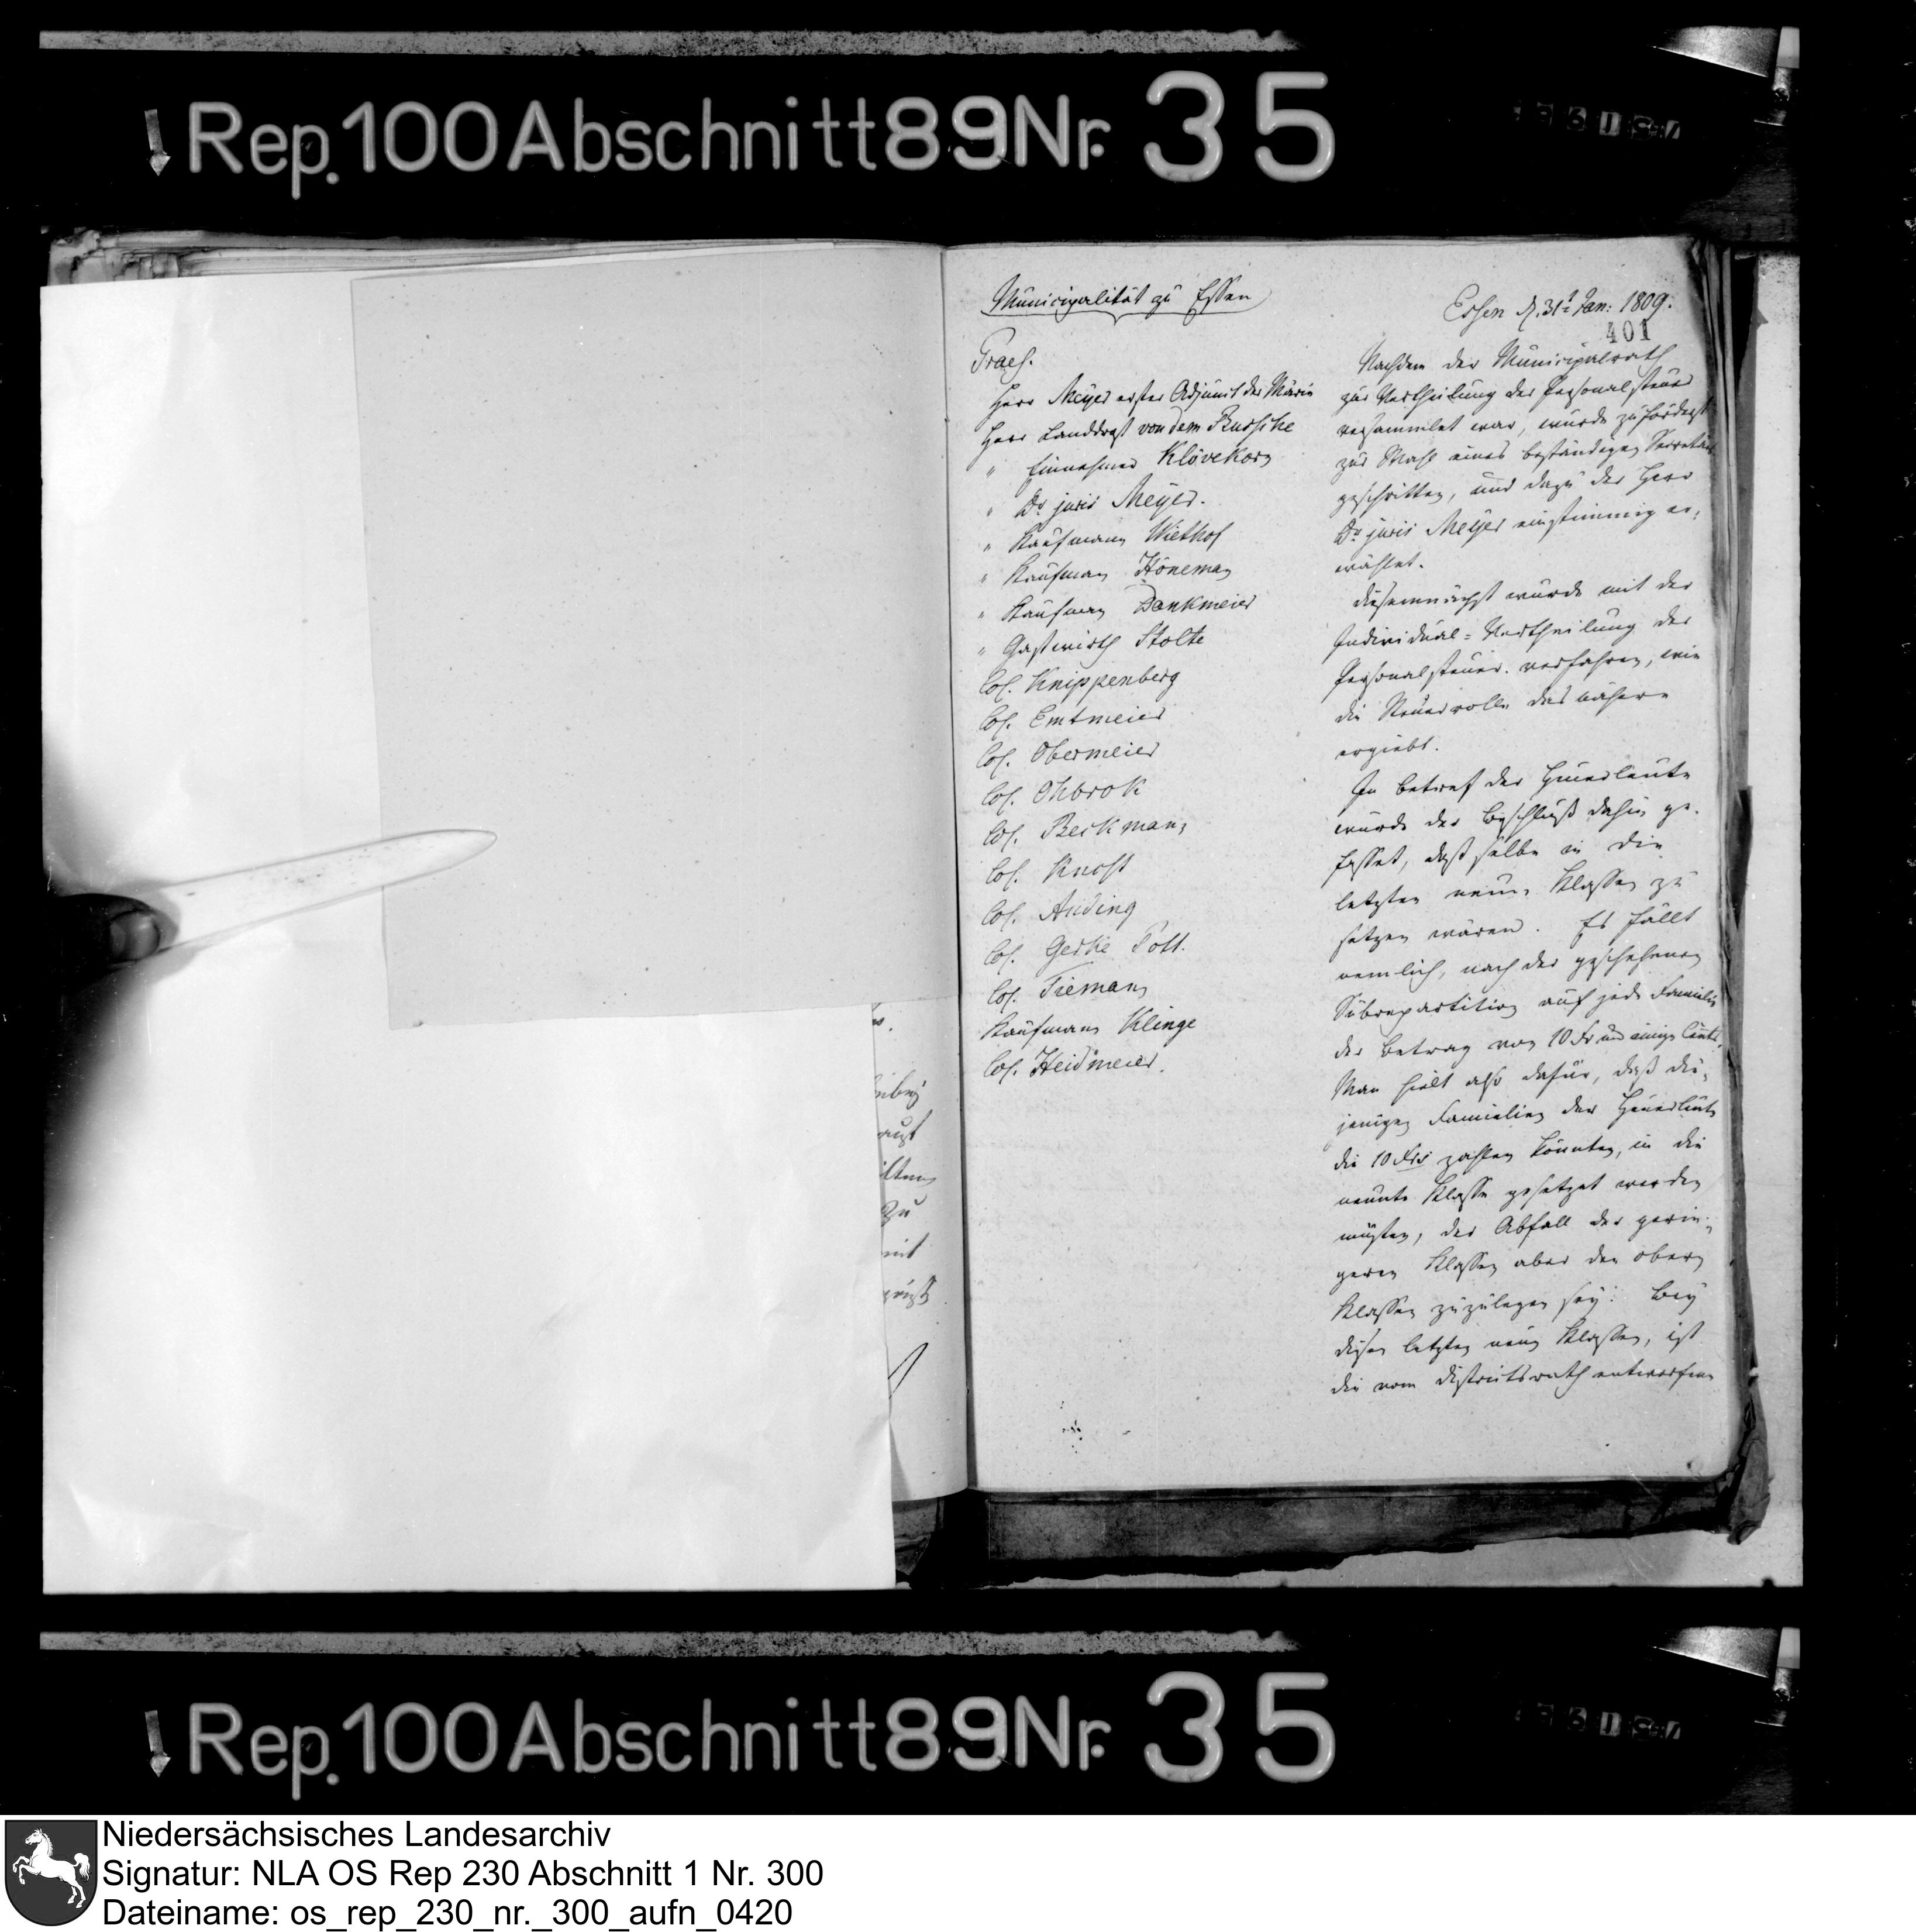 Rep. 100 Abschnitt 89 Nr. 35
Municipalität zu Essen
Essen d. 31t Jan: 1809.
401
Praes.
Herr Meyer erster Adjunct des Maire
Herr Landdrost von dem Bussche
" Einnehmer Klövekorn
" Dr juris Meyer.
" Kaufmann Wiethof
" Kaufman Höneman
" Kaufman Dankmeier
" Gastwirth Stolte
Col. Knippenberg
Col. Emtmeier
Col. Obermeier
Col. Ohbrok
Col. Beckmann
Col. Knost
Col. Anding
Col. Gerke Pott.
Col. Tiemann
Kaufmann Klinge
Col. Heidmeier.
Nachdem der Municipalrath
zur Vertheilung der Personalsteuer
versammlet war, wurde zuförderst
zur Wahl eines beständigen Secretairs
geschritten, und dazu der Herr
Dr juris Meyer einstimmig er-
wählet.
Diesemnächst wurde mit der
Individual-Vertheilung der
Personalsteuer verfahren, wie
die Steuerrolle das nähere
ergiebt.
In betref der Heuerleute
wurde der Beschluß dahin ge-
fasset, daß selbe in die
letzten neun Klassen zu
setzen wären. Es fällt
nemlich, nach der geschehenen
Subrepartition auf jede Familie
der Betrag von 10 Fr und einige Cents.
Man hielt also dafür, daß die-
jenigen Familien der Heuerleute
die 10 Frs zahlen könnten, in die
neunte Klasse gesetzet werden
müsten, der Abfall der gerin-
geren Klassen aber den obern
Klassen zuzulegen sey. Bey
diesen letzten neun Klassen, ist
die vom Districtsrath entworfene
Rep. 100 Abschnitt 89 Nr. 35
Niedersächsisches Landesarchiv
Signatur: NLA OS Rep 230 Abschnitt 1 Nr. 300
Dateiname: os_rep_230_nr._300_aufn_0420